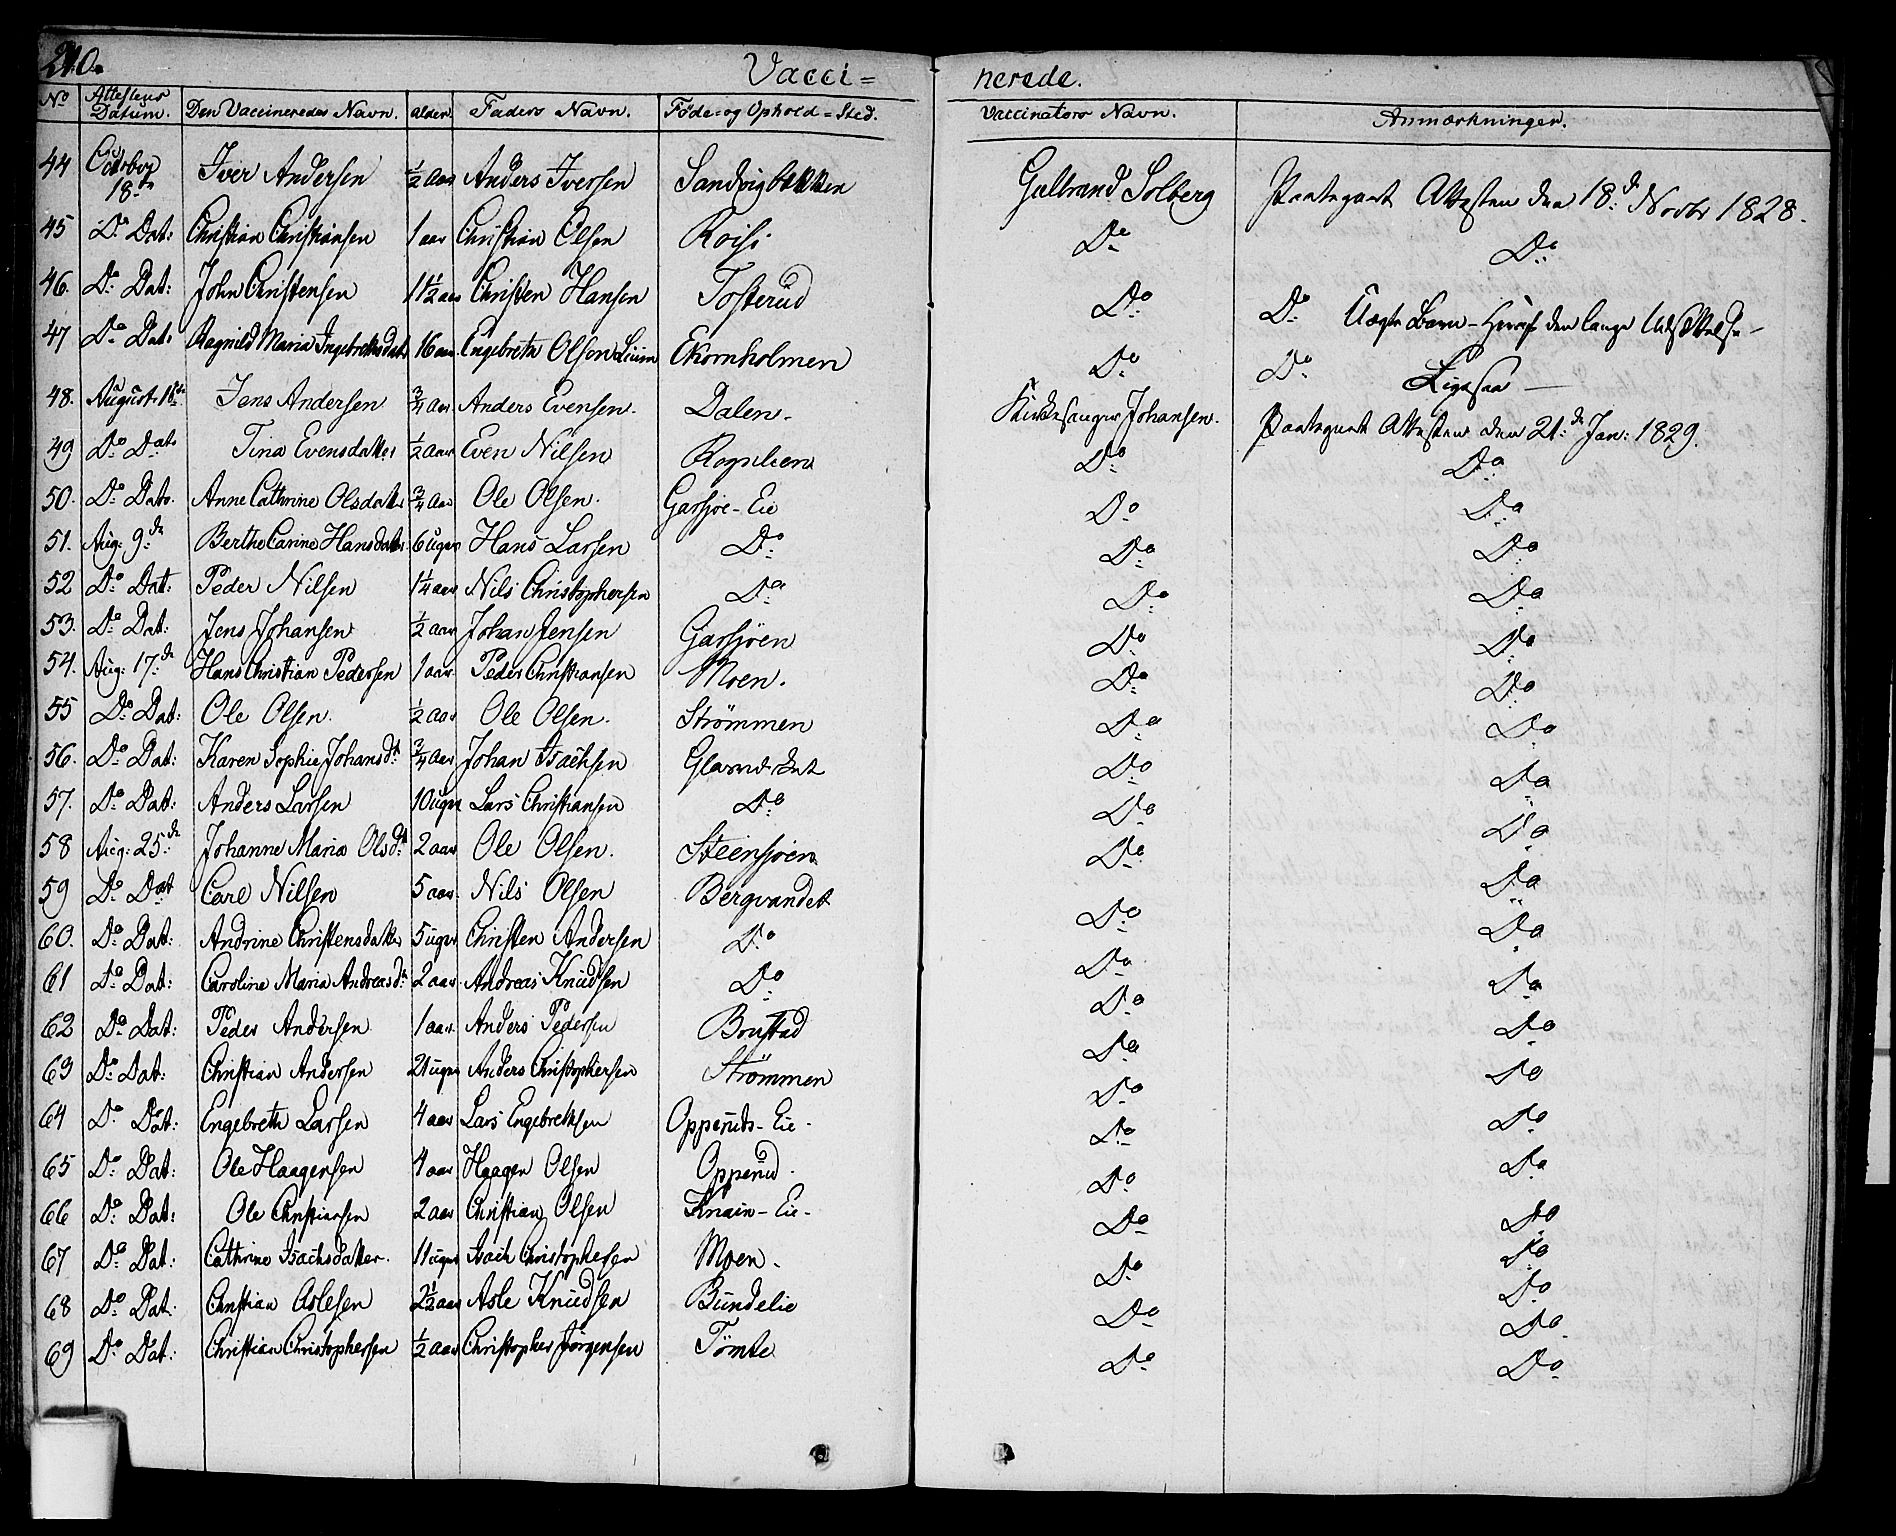 210.
Vacci= nerede.
No Attestens Datum. Den Vaccineredes Navn. alder. Faders Navn. Føde-og Ophold-Sted. Vaccinators Navn. Anmærkninger.
44 Octobr 18de Iver Andersen ½ aar Anders Iversen Sandvigbakken Gulbrand Solberg Paategnet Attesten den 18de Novbr 1828.
45 Do Dat: Christian Christiansen 1 aar Christian Olsen Roise Do Do
46. Do Dat: John Christensen 1½ aar Christen Hansen Tosterud Do Do Uægte Barn - Heraf den lange Udsættelse -
47 Do Dat: Ragnild Maria Ingebrethsdatr 16 aar. Engebreth Olsen Lium Ekornholmen Do Do Ligesaa —
48. August 18de Jens Andersen ¾ aar Anders Evensen. Dalen. Kirkesanger Johansen. Paategnet Attesten den 21de Jan: 1829.
49 Do Dat: Tina Evensdatter ½ aar Even Nilsen Rognlien Do Do
50. Do Dato. Anne Cathrine Olsdatter ¾ aar Ole Olsen. Garsjøe-Eie Do Do
51. Aug: 9de Berthe Carine Hansdatter 6 uger Hans Larsen Do Do Do
52 Do Dat: Peder Nilsen 1¼ aar Nils Christophersen Do Do Do
53. Do Dat: Jens Johansen ½ aar Johan Jensen Garsjøen Do Do
54. Aug: 17de Hans Christian Pedersen 1 aar Peder Christiansen Moen. Do Do
55 Do Dat: Ole Olsen. ½ aar Ole Olsen. Strømmen Do Do
56. Do Dat: Karen Sophie Johansdtr ¾ aar Johan Isachsen Do Do
57. Do Dat: Anders Larsen 10 uger Lars Christiansen Do Do Do
58 Aug: 25de Johanne Maria Olsdtr 2 aar Ole Olsen. Steensjøen Do Do
59 Do Dat Carl Nilsen 5 aar. Nils Olsen Bergvandet Do Do
60. Do Dat: Andrine Christensdatter 5 uger Christen Andersen Do Do Do
61 Do Dat: Caroline Maria Andreasdr 2 aar. Andreas Knudsen Do Do Do
62 Do Dat: Peder Andersen 1 aar. Anders Pedersen Brustad Do Do
63 Do Dat: Christian Andersen 21 uger Anders Christophersen Strømmen Do Do
64 Do Dat: Engebreth Larsen 4 aar Lars Engebrethsen Opperuds-Eie. Do Do
65 Do Dat: Ole Haagensen 4 aar Haagen Olsen Opperud. Do Do
66 Do Dat: Ole Christiansen 2 aar Christian Olsen Knain-Eie. Do Do
67 Do Dat: Cathrine Isachsdatter. 11 uger Isach Christophersen Moen. Do Do
68 Do Dat: Christian Aslesen 2½ aar Asle Knudsen Bundelie Do Do
69 Do Dat: Christian Christophersen ½ aar Christopher Jørgensen Tømte Do Do